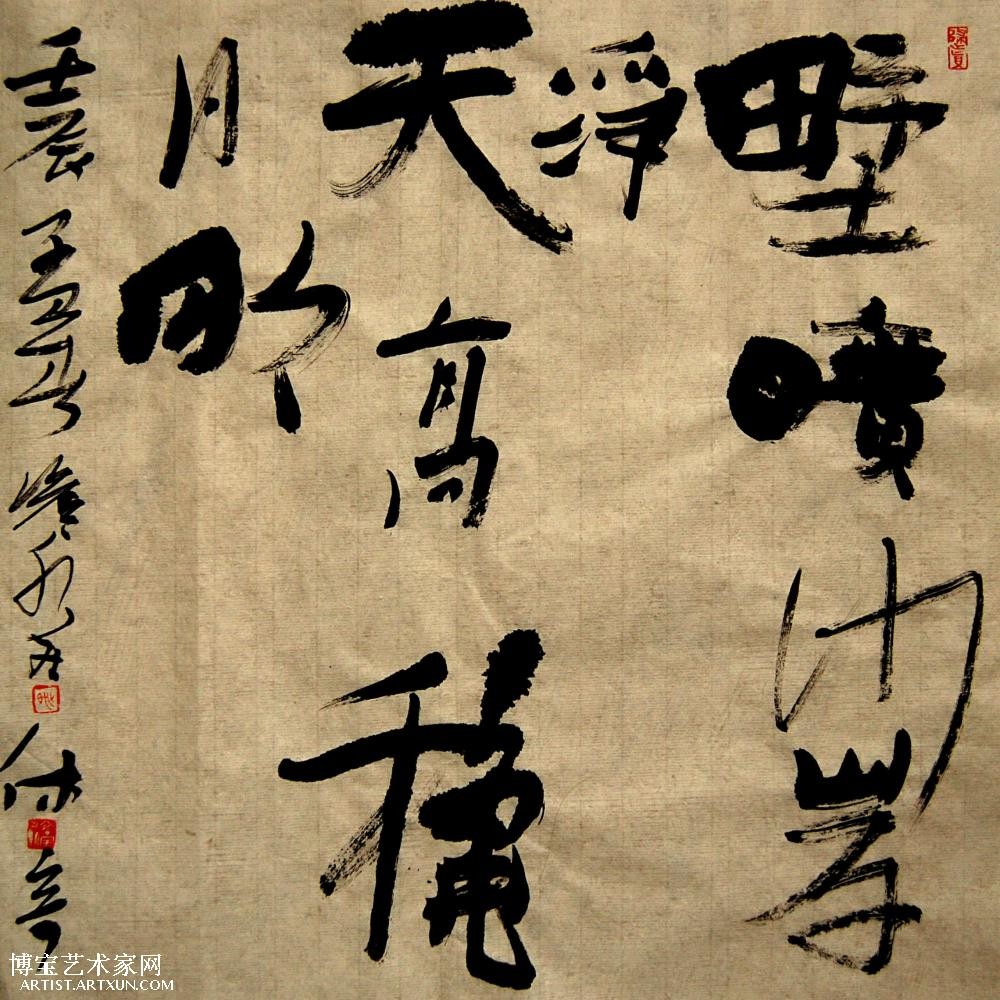 野曠沙岸
淨
天高穐
月明
壬辰孟春
博宝艺术家网
ARTIST.ARTXUN.COM